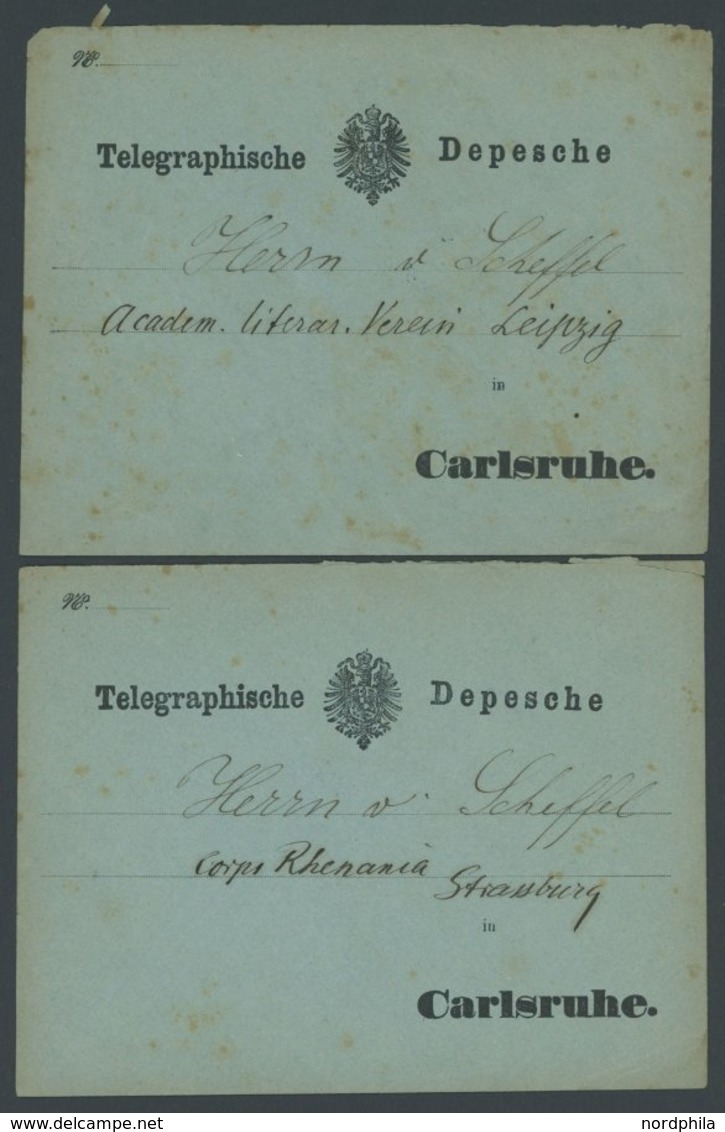 No.
Telegraphische Depesche
Herrn v Scheffel
Academ. literar. Verein Leipzig
in
Carlsruhe.
No.
Telegraphische Depesche
Herrn v. Scheffel
Corps Rhenania Strassburg
in
Carlsruhe.
nordphila